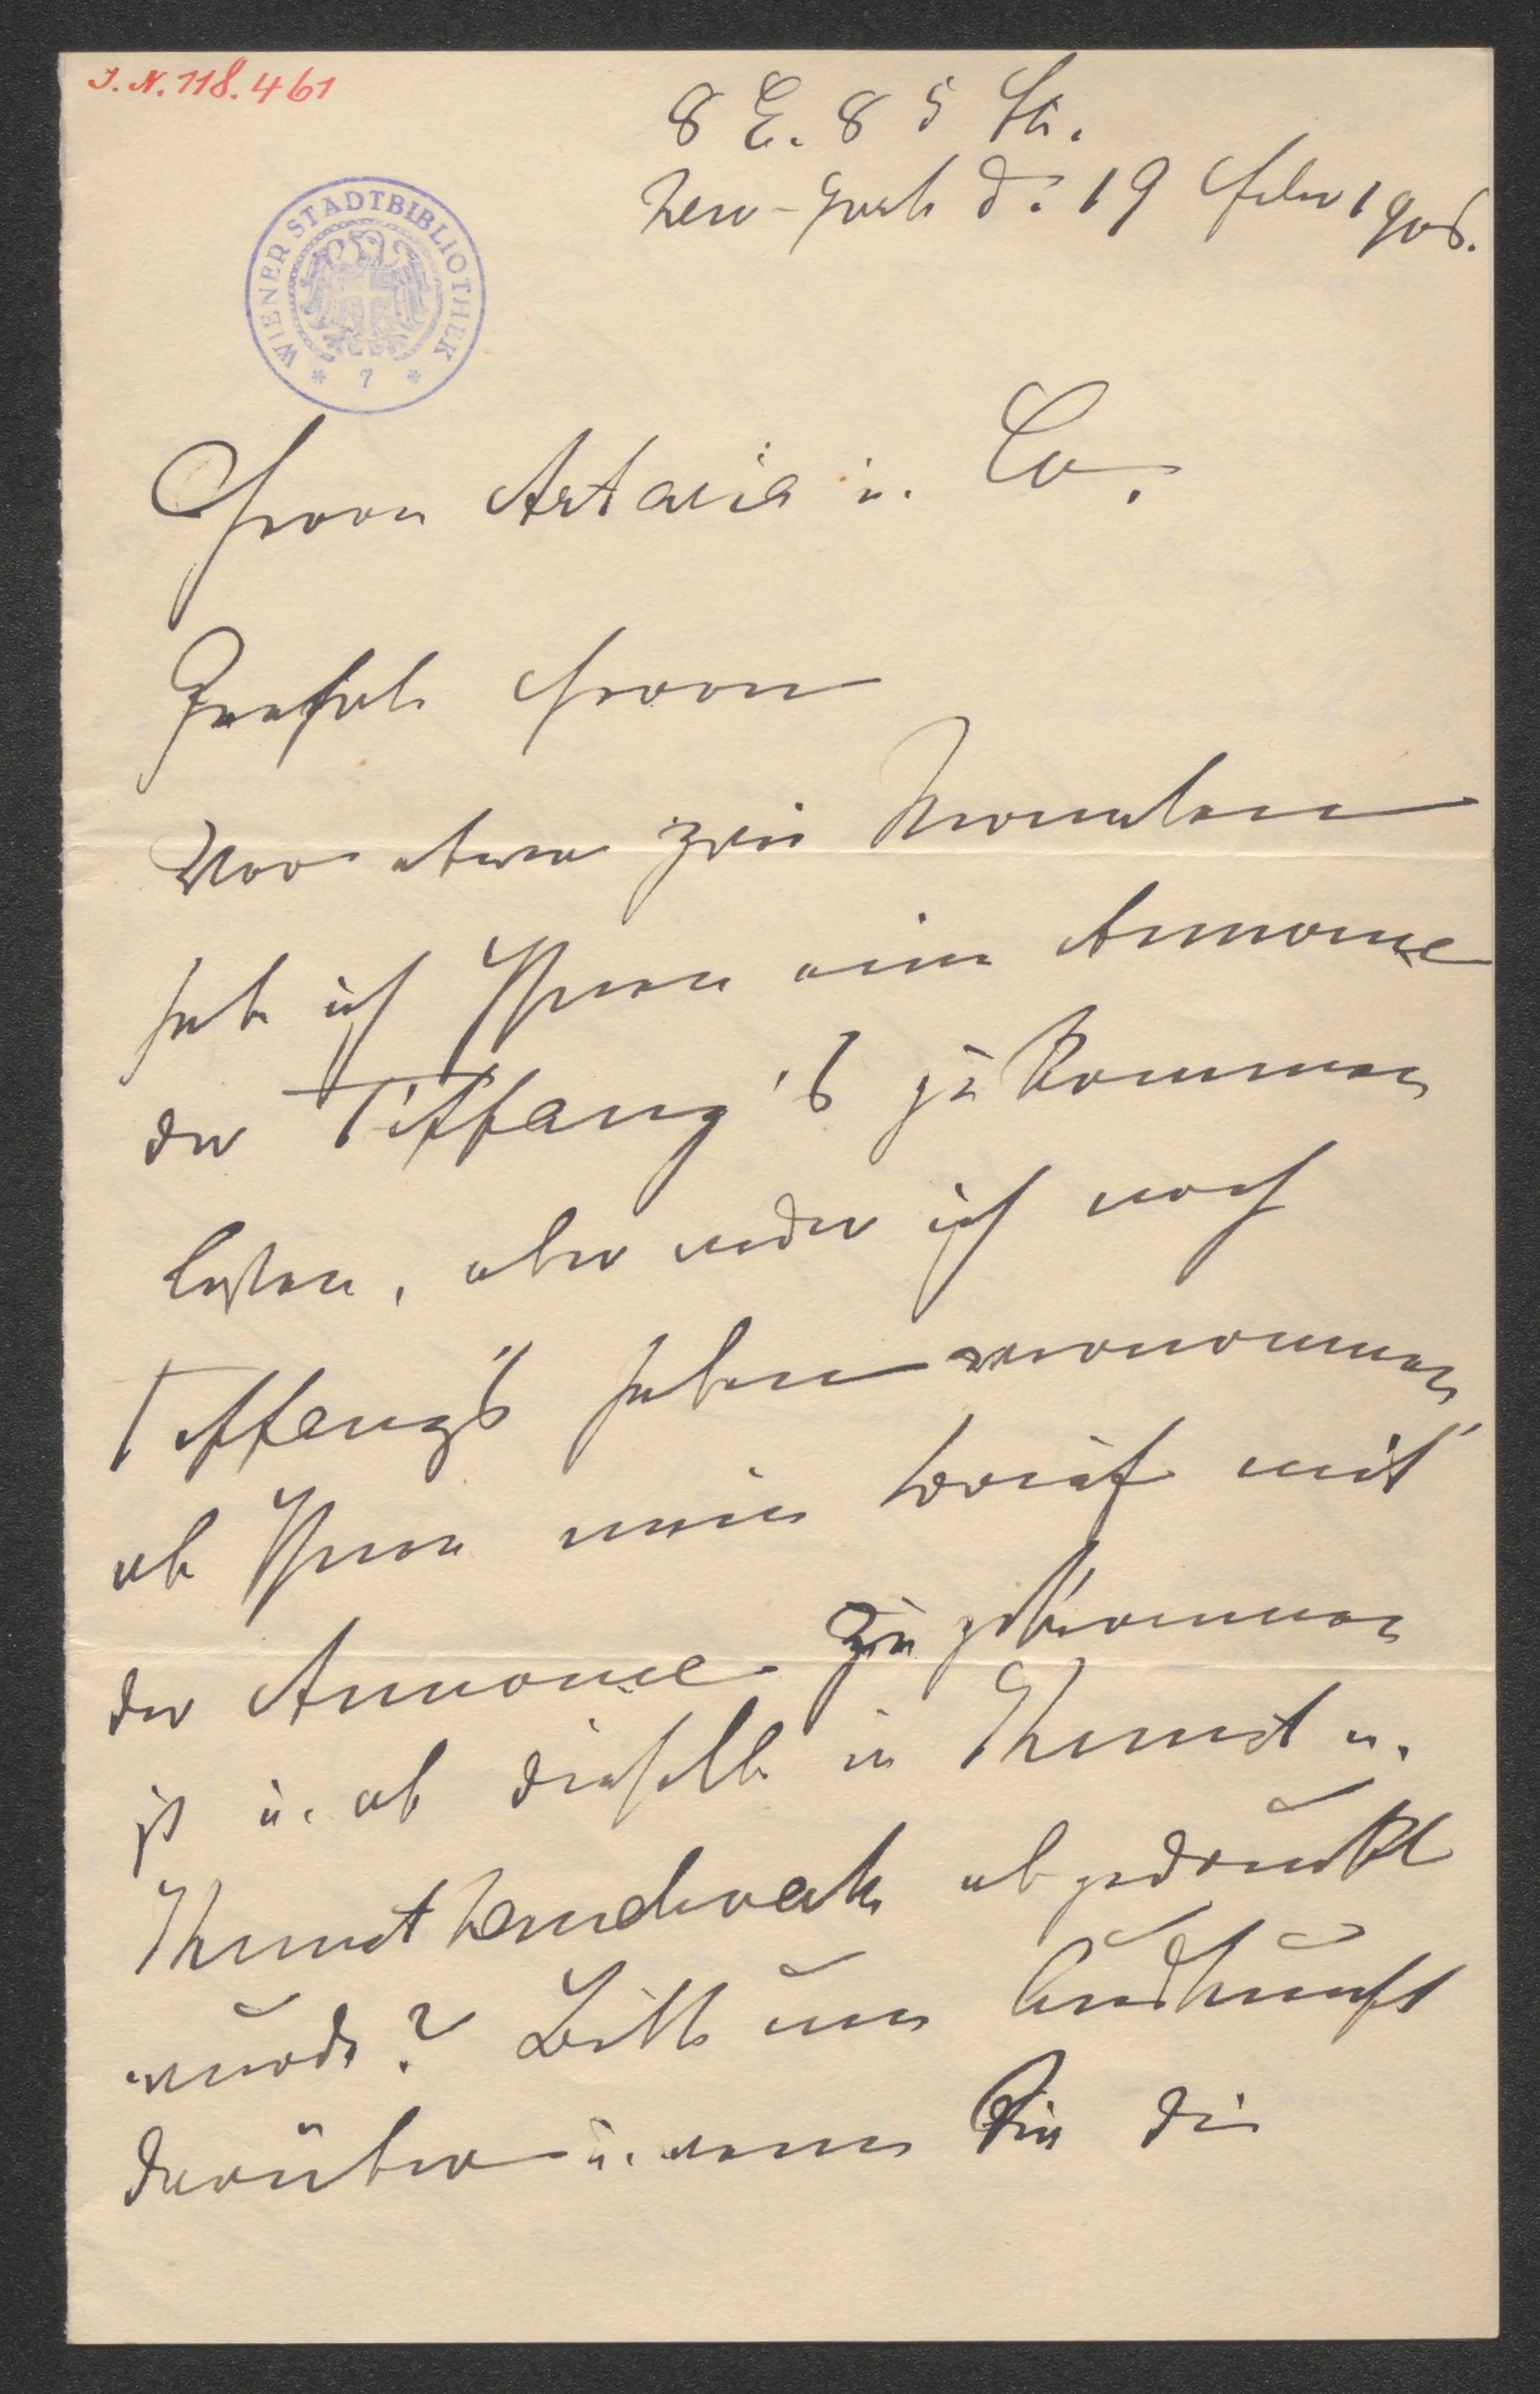 J. N. 118.461
8 E. 85 St.
New-York d. 19 Febr 1906.
WIENER STADTBIBLIOTHEK
* 7 *
Herren Artaria u. Co.
Geehrte Herren
Vor etwa zwei Monaten
habe ich Ihnen eine Annonce
der Tiffany's zukommen
lassen, aber weder ich noch
Tiffany's haben vernommen
ob Ihnen mein Brief mit
der Annonce zugekommen
ist u. ob dieselbe in Kunst u.
Kunsthandwerk abgedruckt
wurde? Bitte um Auskunft
darüber u. wenn Sie die